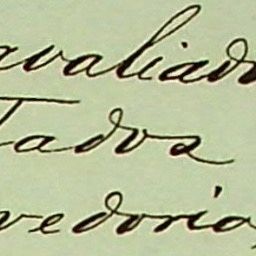 avaliado
Tados
vedorio